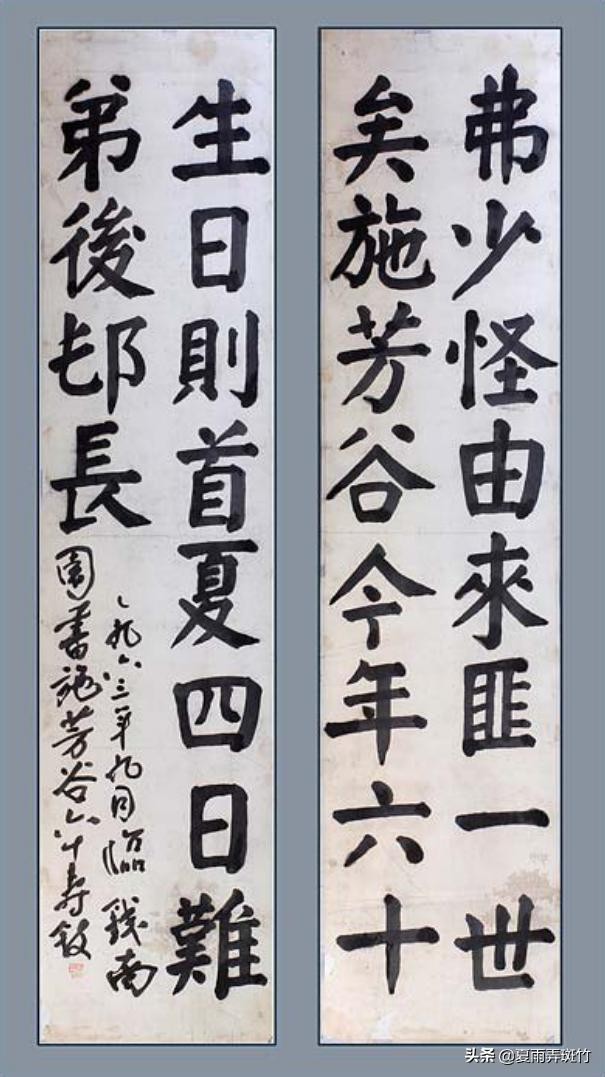 弗少怪由來匪一世
矣施芳谷今年六十
生日則首夏四日難
弟後邨長
一九六三年九月臨錢南
園書施芳谷六十寿叙
头条 @夏雨弄斑竹